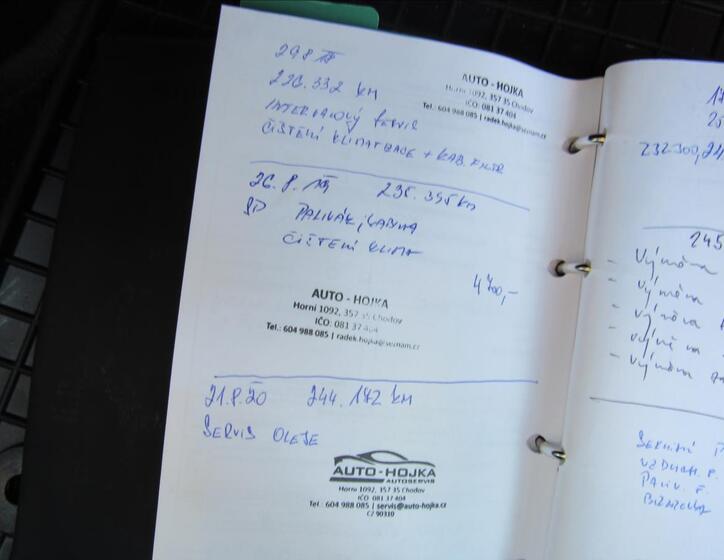 226.332 KM
INTERVALOVÝ SERVIS
ČIŠTĚNÍ KLIMATIZACE + KAB. FILTR
AUTO - HOJKA
Horní 1092, 357 35 Chodov
IČO: 081 37 404
Tel.: 604 988 085 | radek.hojka@seznam.cz
26.8. 235.395 KM
PALIVÁK, KABINA
ČIŠTĚNÍ KLIMA
4700,-
AUTO - HOJKA
Horní 1092, 357 35 Chodov
IČO: 081 37 404
Tel.: 604 988 085 | radek.hojka@seznam.cz
21.8.20 244.172 KM
SERVIS OLEJE
AUTO-HOJKA
AUTOSERVIS
Horní 1092, 357 35 Chodov
IČO: 081 37 404
Tel.: 604 988 085 | servis@auto-hojka.cz
17
25
232300,24
245
- Výměna
- Výměna
- Výměna
- Výměna